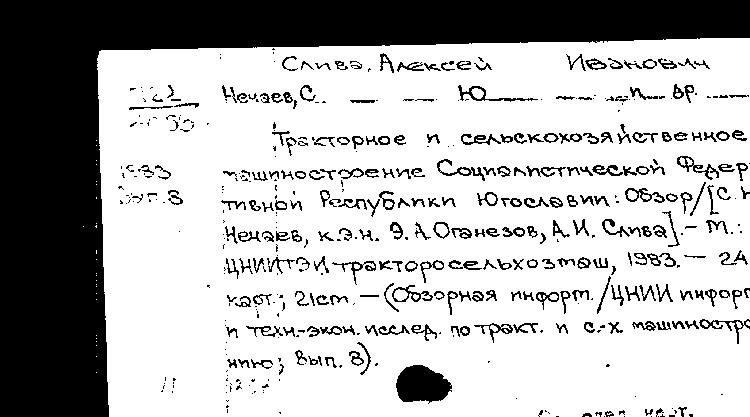 Слива, Алексей Иванович
Нечаев, С. — — Ю — — п др. —
Тракторное и сельскохозяйственное
1983 машиностроение Социалистической Федер
Вып. 8 тивной Республики Югославии: Обзор/[С.
Нечаев, к.э.н. Э.А. Оганезов, А.И. Слива]. – М.:
ЦНИИТЭИ тракторосельхозмаш, 1983. — 24
карт.; 21 см. — (Обзорная информ./ЦНИИ информ
и техн.-экон. исслед. по тракт. и с.-х машиностро
нию; вып. 8).